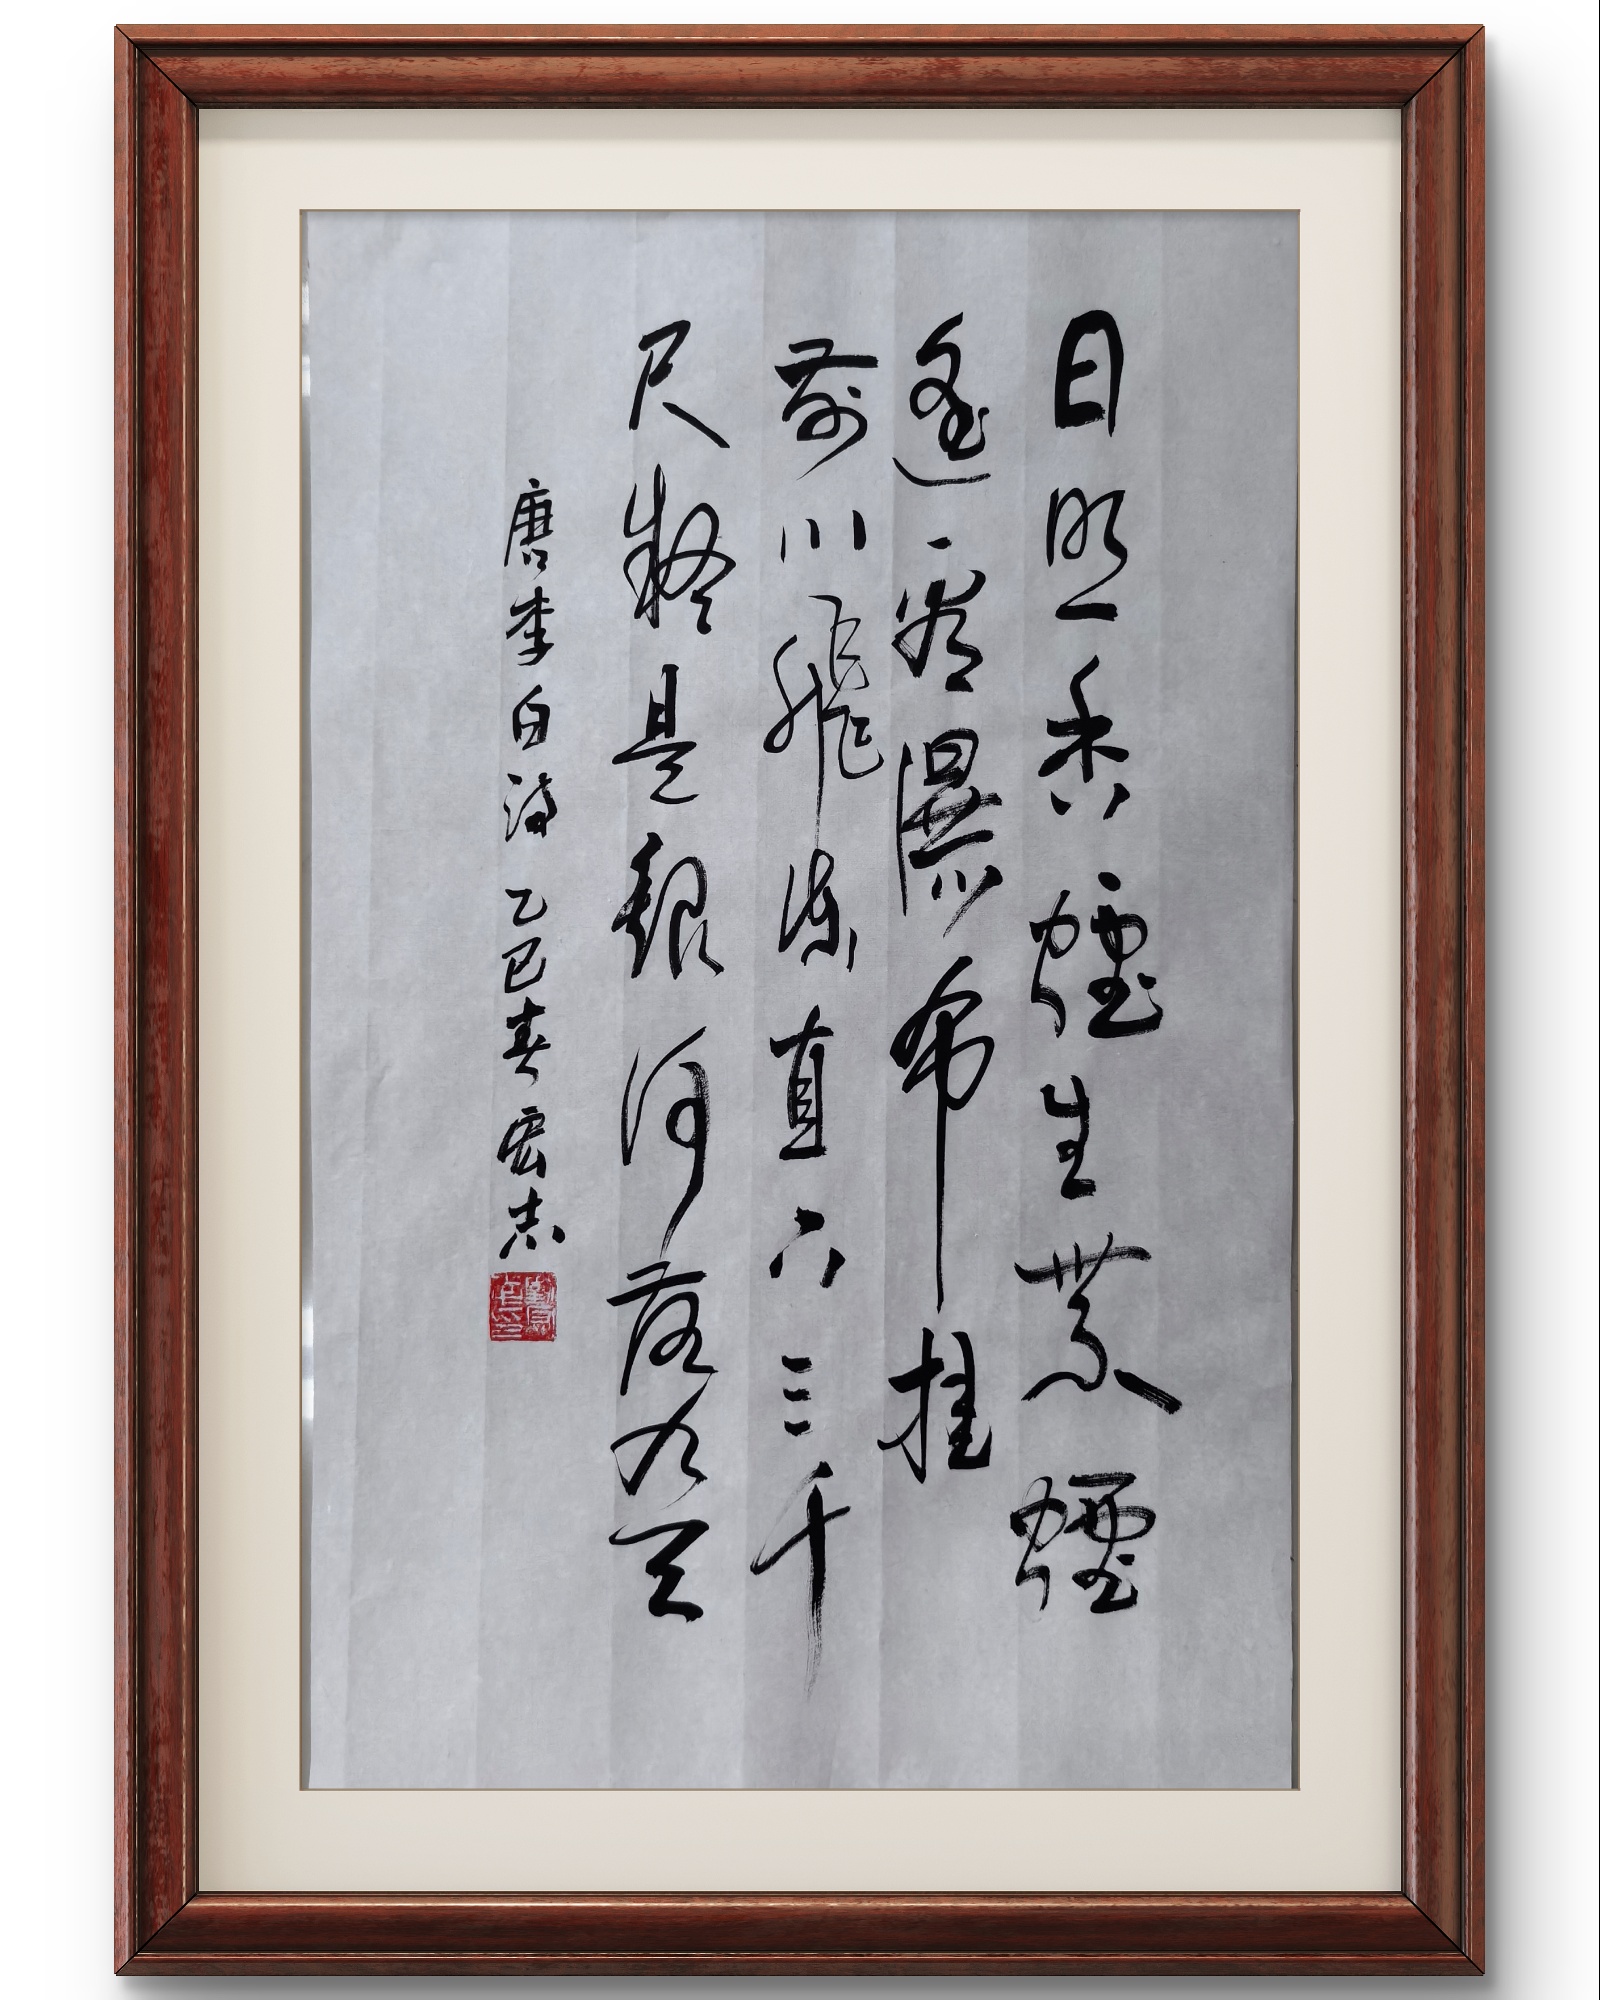 日照香煙生紫煙
遙看瀑布挂
前川飛流直下三千
尺疑是銀河落九天
唐李白詩 乙巳春 宏志